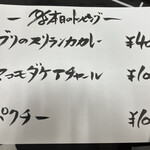 ー 本日のトッピング ー
ブリのスリランカカレー ¥40
マコモダケアチャール ¥10
パクチー ¥10